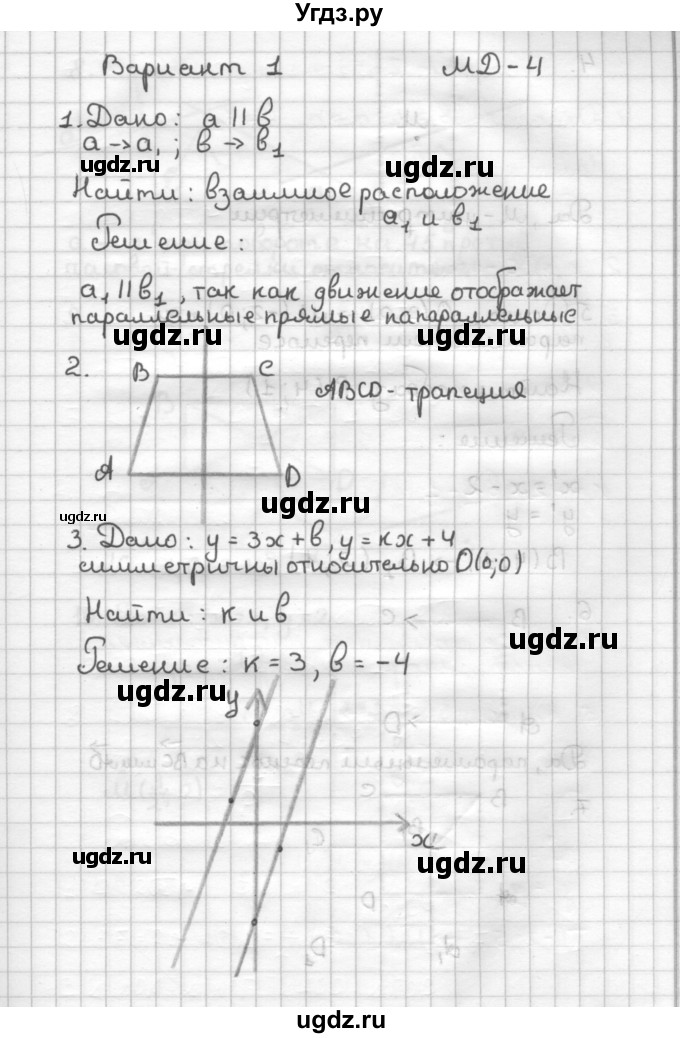 Угдз.ру
Вариант 1 МД-4
1. Дано: a || b
a → a₁; b → b₁
ugdz.ru
Найти: взаимное расположение
a₁ и b₁
Решение:
a₁ || b₁, так как движение отображает
параллельные прямые на параллельные
ugdz.ru ugdz.ru
2. B C
ABCD - трапеция
A D
ugdz.ru
ugdz.ru
3. Дано: y = 3x + b, y = kx + 4
симметричны относительно O(0;0)
ugdz.ru
Найти: k и b
ugdz.ru
Решение: k = 3, b = -4
ugdz.ru
y
x
ugdz.ru ugdz.ru
ugdz.ru